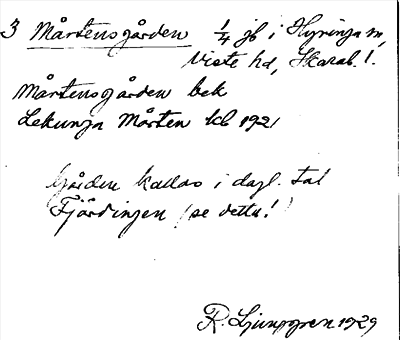 3 Mårtensgården 1/4 jb i Hyringa sn,
Viste hd, Skarab. l.
Mårtensgården bek
Lekunga Mårten kb 1921
Gården kallas i dagl. tal
Fjärdingen (se detta!)
R. Ljunggren 1929